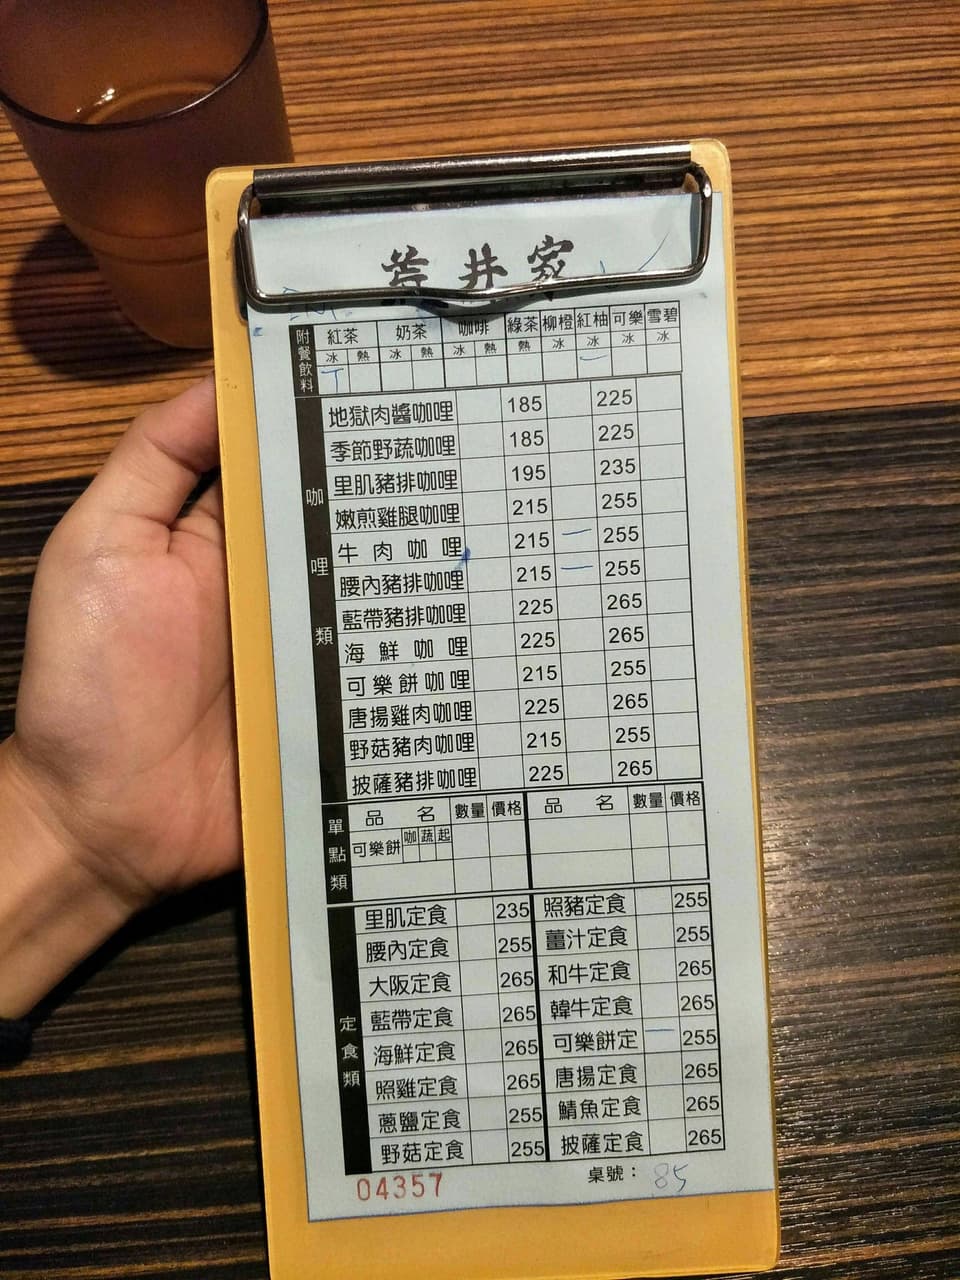 荒井家
附餐飲料 紅茶 奶茶 咖啡 綠茶 柳橙 紅柚 可樂 雪碧
冰 熱 冰 熱 冰 熱 熱 冰 冰 冰 冰
丅 一
咖哩類
地獄肉醬咖哩 185 225
季節野蔬咖哩 185 225
里肌豬排咖哩 195 235
嫩煎雞腿咖哩 215 255
牛肉咖哩 215 一 255
腰內豬排咖哩 215 一 255
藍帶豬排咖哩 225 265
海鮮咖哩 225 265
可樂餅咖哩 215 255
唐揚雞肉咖哩 225 265
野菇豬肉咖哩 215 255
披薩豬排咖哩 225 265
單點類
品名 數量 價格 品名 數量 價格
可樂餅 咖 蔬 起
定食類
里肌定食 235 照豬定食 255
腰內定食 255 薑汁定食 255
大阪定食 265 和牛定食 265
藍帶定食 265 韓牛定食 265
海鮮定食 265 可樂餅定 一 255
照雞定食 265 唐揚定食 265
蔥鹽定食 255 鯖魚定食 265
野菇定食 255 披薩定食 265
04357 桌號： 85